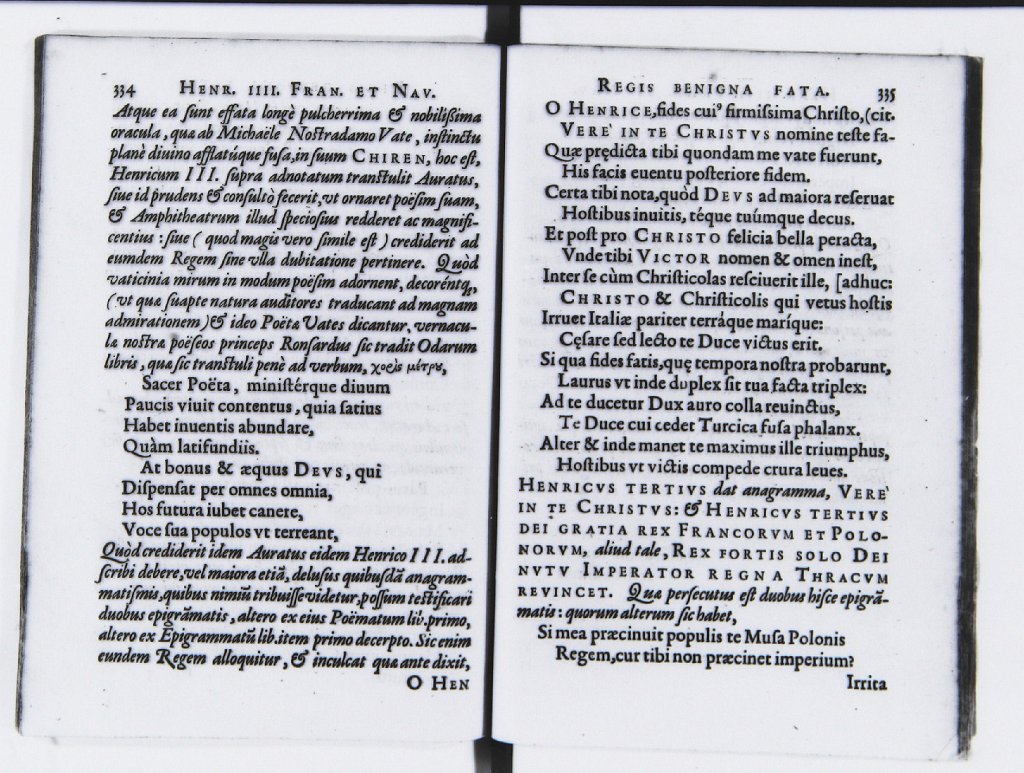 334 HENR. IIII. FRAN. ET NAV.
Atque ea sunt effata longè pulcherrima & nobilissima
oracula, quæ ab Michaële Nostradamo Vate, instinctu
planè diuino afflatúque fusa, in suum CHIREN, hoc est,
Henricum III. supra adnotatum transtulit Auratus,
siue id prudens & consultò fecerit, vt ornaret poësim suam,
& Amphitheatrum illud speciosius redderet ac magnifi-
centius : siue ( quod magis vero simile est ) crediderit ad
eumdem Regem sine vlla dubitatione pertinere. Quòd
vaticinia mirum in modum poësim adornent, decorentq;
( vt quæ suapte natura auditores traducant ad magnam
admirationem ) & ideo Poëtæ Vates dicantur, vernacu-
læ nostræ poëseos princeps Ronsardus sic tradit Odarum
libris, quæ sic transtuli penè ad verbum, χωρὶς μέτρου,
Sacer Poëta, ministérque diuum
Paucis viuit contentus, quia satius
Habet inuentis abundare,
Quàm latifundiis.
At bonus & æquus DEVS, qui
Dispensat per omnes omnia,
Hos futura iubet canere,
Voce sua populos vt terreant,
Quòd crediderit idem Auratus eidem Henrico III. ad-
scribi debere, vel maiora etiā, delusus quibusdā anagram-
matismis, quibus nimiū tribuisse videtur, possum testificari
duobus epigrāmatis, altero ex eius Poëmatum lib. primo,
altero ex Epigrammatū lib. item primo decerpto. Sic enim
eundem Regem alloquitur, & inculcat quæ ante dixit,
O HEN
REGIS BENIGNA FATA. 335
O HENRICE, fides cui⁹ firmissima Christo, (cit.
VERE` IN TE CHRISTVS nomine teste fa-
Quæ prędicta tibi quondam me vate fuerunt,
His facis euentu posteriore fidem.
Certa tibi nota, quòd DEVS ad maiora reseruat
Hostibus inuitis, téque tuúmque decus.
Et post pro CHRISTO felicia bella peracta,
Vnde tibi VICTOR nomen & omen inest,
Inter se cùm Christicolas resciuerit ille, [adhuc:
CHRISTO & Christicolis qui vetus hostis
Irruet Italiæ pariter terráque maríque:
Cęsare sed lecto te Duce victus erit.
Si qua fides fatis, quę tempora nostra probarunt,
Laurus vt inde duplex sit tua facta triplex:
Ad te ducetur Dux auro colla reuinctus,
Te Duce cui cedet Turcica fusa phalanx.
Alter & inde manet te maximus ille triumphus,
Hostibus vt victis compede crura leues.
HENRICVS TERTIVS dat anagramma, VERE`
IN TE CHRISTVS: & HENRICVS TERTIVS
DEI GRATIA REX FRANCORVM ET POLO-
NORVM, aliud tale, REX FORTIS SOLO DEI
NVTV IMPERATOR REGNA THRACVM
REVINCET. Quæ persecutus est duobus hisce epigrā-
matis : quorum alterum sic habet,
Si mea præcinuit populis te Musa Polonis
Regem, cur tibi non præcinet imperium?
Irrita